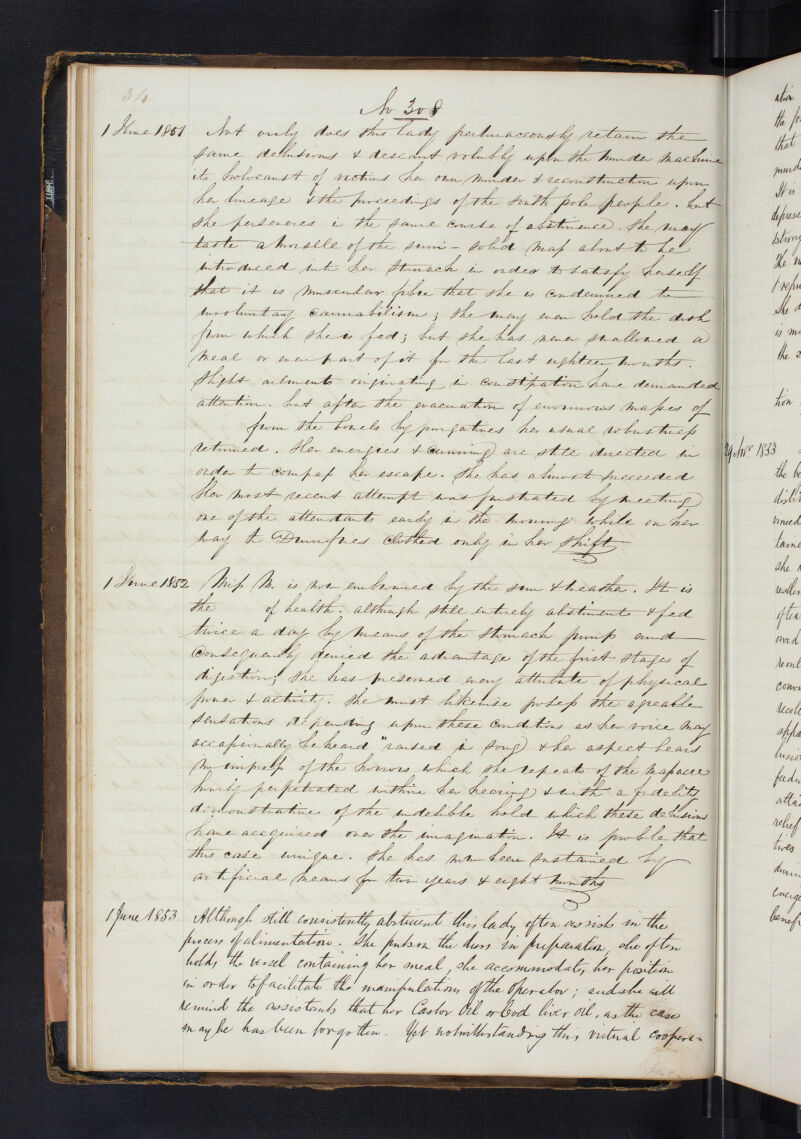 No 308
1 June 1851 Not only does this lady pertinaceously retain the
same delusions & descant volubly upon the murder machine
its holocaust of victims her own murder & reconstruction upon
her lineage & the proceedings of the South pole people. but
she perseveres in the same course of abstinence. She may
taste a morselle of the semi-solid mass about to be
introduced into her stomach in order to satisfy herself
that it is muscular fibre that she is condemned to
involuntary cannabilism; she may even hold the dish
from which she is fed; but she has never swallowed a
meal or even part of it for the last eighteen months.
Slight ailments originating in constipation have demanded
attention. but after the evacuation of enormous masses of
from the bowels by purgatives her usual robustness
returned. Her energies & cunning are still directed in
order to compass her escape. She has almost succeeded
Her most recent attempt was frustrated by meeting
one of the attendants early in the morning while on her
way to Dumfries clothed only in her shift
1 June 1852 Miss M. is now embrowned by the sun & weather. It is
the of health. although still entirely abstinent & fed
twice a day by means of the stomach pump and
consequently denied the advantage of the first stages of
digestion; she has preserved every attribute of physical
power & activity. She must likewise possess the agreable
sensations depending upon these conditions as her voice may
occasionally be heard "raised in song & her aspect bears
no impress of the horrors which she repeats of the massacre
hourly perpetrated within her hearing & with a fidelity
demonstrative of the indelible hold which these delusions
have acequired over the imagination. It is proble that
this case unique. She has now been sustained by
artificial means for two years & eight months
1 June 1853 Although still consistently abstinent this lady often assists in the
process of alimentation. She puts on the dress in preparation, she often
holds the vessel containing her meal, she accommodates her position
in order to facilitate the manipulations of the operator; and she will
remind the assistants that her Castor Oil or Cod liver oil, as the case
may be has been forgotten. Yet notwithstanding this virtual coopera=
29 Nov 1853